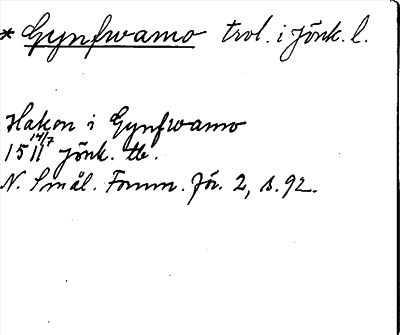 * Gynfwamo trol. i Jönk. l.
Hakon i Gynfwamo
15 14/7 11 Jönk. tb.
N. Smål. Fornm. för. 2, s. 92.